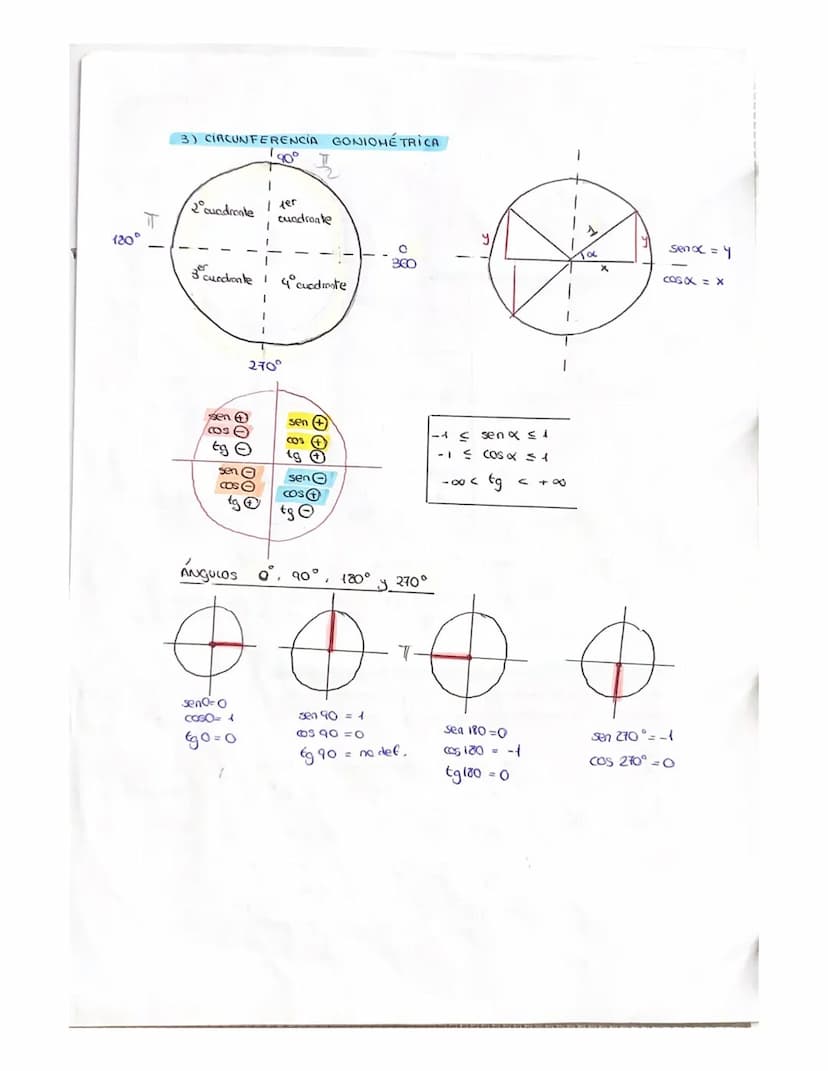 3) CIRCUNFERENCIA GONIOMÉTRICA
90° π/2
2º cuadrante
1er cuadrante
π
180°
0
360
3er cuadrante
4º cuadrante
270°
y
1
α
x
y
sen α = y
cos α = x
sen ⊕
cos ⊖
tg ⊖
sen ⊕
cos ⊕
tg ⊕
sen ⊖
cos ⊖
tg ⊕
sen ⊖
cos ⊕
tg ⊖
-1 ≤ sen α ≤ 1
-1 ≤ cos α ≤ 1
-∞ < tg < +∞
ÁNGULOS 0°, 90°, 180° y 270°
π
sen0=0
cos0= 1
tg 0 = 0
sen 90 = 1
cos 90 = 0
tg 90 = no def.
sen 180 = 0
cos 180 = -1
tg 180 = 0
sen 270° = -1
cos 270° = 0